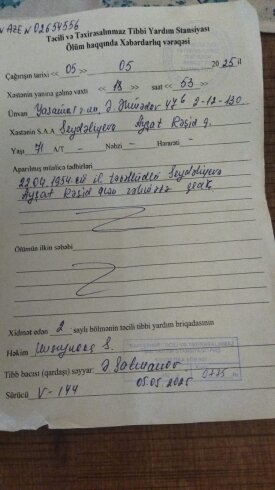 AZE N 02654556
Təcili və Təxirəsalınmaz Tibbi Yardım Stansiyası
Ölüm haqqında Xəbərdarlıq vərəqəsi
Çağırışın tarixi << 05 >> 05 2025 il
Xəstənin yanına gəlmə vaxtı << 18 >> saat << 53 >>
Ünvan Yasamal r-un, 47б 2-12-130
Xəstənin S.A.A Seydəliyeva Ayşat Rəşid q.
Yaşı 71 A/T – Nəbzi – Hərarəti –
Aparılmış müalicə tədbirləri
22.04.1954-cü il təvəllüdlü Seydəliyeva
Ayşat Rəşid qızı
Ölümün ilkin səbəbi
Xidmət edən 2 saylı bölmənin təcili tibbi yardım briqadasının
Həkim S.
Tibb bacısı (qardaşı) səyyar: Ə Salmanov
05.05.2025
Sürücü V-144